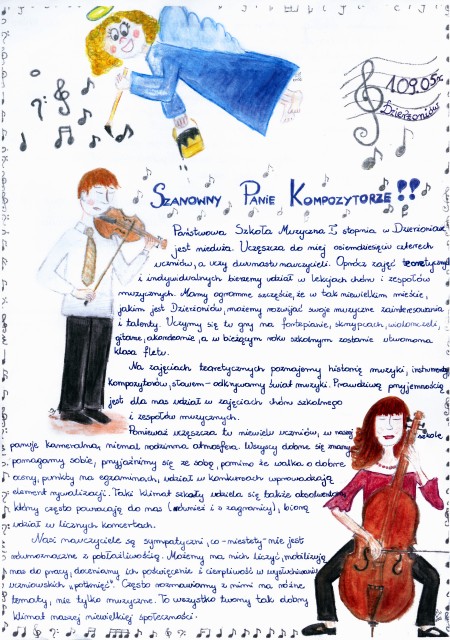 1.09.05r.
Dzierżoniów
SZANOWNY PANIE KOMPOZYTORZE!!
Państwowa Szkoła Muzyczna I stopnia w Dzierżoniowie
jest nieduża. Uczęszcza do niej osiemdziesięciu czterech
uczniów, a uczy dwunastu nauczycieli. Oprócz zajęć teoretycznych
i indywidualnych bierzemy udział w lekcjach chóru i zespołów
muzycznych. Mamy ogromne szczęście, że w tak niewielkim mieście,
jakim jest Dzierżoniów, możemy rozwijać swoje muzyczne zainteresowania
i talenty. Uczymy się tu gry na fortepianie, skrzypcach, wiolonczeli,
gitarze, akordeonie, a w bieżącym roku szkolnym zostanie utworzona
klasa fletu.
Na zajęciach teoretycznych poznajemy historię muzyki, instrumenty,
kompozytorów, słowem - odkrywamy świat muzyki. Prawdziwą przyjemnością
jest dla nas udział w zajęciach chóru szkolnego
i zespołów muzycznych.
Ponieważ uczęszcza tu niewielu uczniów, w naszej szkole
panuje kameralna, niemal rodzinna atmosfera. Wszyscy dobrze się znamy,
pomagamy sobie, przyjaźnimy się ze sobą, pomimo że walka o dobre
oceny, punkty na egzaminach, udział w konkursach wprowadzają
element rywalizacji. Taki klimat szkoły udziela się także absolwentom,
którzy często powracają do nas (również i z zagranicy), biorą
udział w licznych koncertach.
Nasi nauczyciele są sympatyczni, co -niestety- nie jest
równoznaczne z pobłażliwością. Możemy na nich liczyć, mobilizują
nas do pracy, doceniamy ich poświęcenie i cierpliwość w wysłuchiwaniu
uczniowskich "potknięć". Często rozmawiamy z nimi na różne
tematy, nie tylko muzyczne. To wszystko tworzy tak dobry
klimat naszej niewielkiej społeczności.